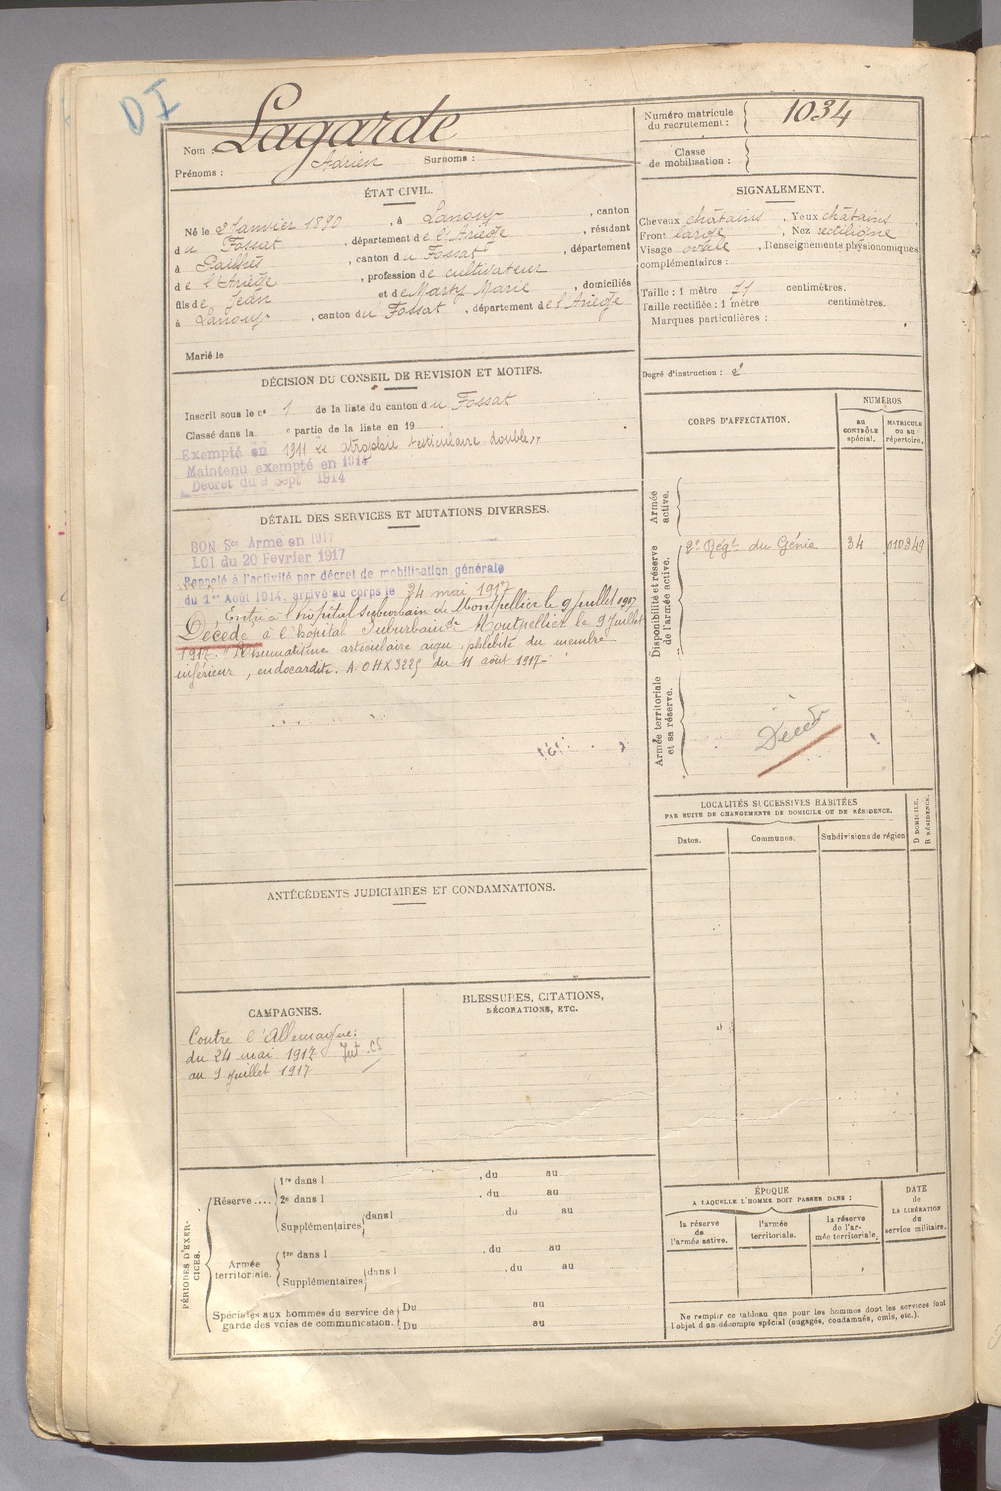 DI
Nom : Lagarde
Prénoms : Adrien Surnoms :
Numéro matricule du recrutement : 1034
Classe de mobilisation :
ÉTAT CIVIL.
Né le 2 Janvier 1890, à Lanoux, canton
du Fossat, département de l'Ariège, résidant
à Pailhès, canton du Fossat, département
de l'Ariège, profession de cultivateur
fils de Jean et de Marty Marie, domiciliés
à Lanoux, canton du Fossat, département de l'Ariège
Marié le
SIGNALEMENT.
Cheveux châtains, Yeux châtains
Front large, Nez rectiligne
Visage ovale, Renseignements physionomiques
complémentaires :
Taille : 1 mètre 71 centimètres.
Taille rectifiée : 1 mètre centimètres.
Marques particulières :
Degré d'instruction : 2
DÉCISION DU CONSEIL DE REVISION ET MOTIFS.
Inscrit sous le n° 1 de la liste du canton du Fossat
Classé dans la e partie de la liste en 19
Exempté en 1911 « atrophie testiculaire double »
Maintenu exempté en 1914
Décret du 9 Sept 1914
CORPS D'AFFECTATION.
NUMÉROS
AU CONTRÔLE spécial.
MATRICULE OU AU répertoire.
Armée active.
Disponibilité et réserve de l'armée active.
2e Régt du Génie 34
Armée territoriale et sa réserve.
Décédé
DÉTAIL DES SERVICES ET MUTATIONS DIVERSES.
BON Sce Armé en 1917
LOI du 20 Fevrier 1917
Rappelé à l'activité par décret de mobilisation générale
du 1er Août 1914, arrivé au corps le 24 mai 1917
Entré à l'hôpital suburbain de Montpellier le 9 juillet 1917
Décédé à l'hôpital Suburbain de Montpellier le 9 Juillet
1917. Rhumatisme articulaire aigu, phlébite du membre
inférieur, endocardite. du 11 août 1917
LOCALITÉS SUCCESSIVES HABITÉES
PAR SUITE DE CHANGEMENTS DE DOMICILE OU DE RÉSIDENCE.
Dates.
Communes.
Subdivisions de région
D DOMICILE.
R RÉSIDENCE.
ANTÉCÉDENTS JUDICIAIRES ET CONDAMNATIONS.
CAMPAGNES.
Contre l'Allemagne :
du 24 mai 1917
au 9 juillet 1917
Int. CS
BLESSURES, CITATIONS,
DÉCORATIONS, ETC.
PÉRIODES D'EXERCICES.
Réserve....
1re dans l , du au
2e dans l , du au
Supplémentaires dans l , du au
Armée territoriale.
1re dans l , du au
Supplémentaires dans l , du au
Spéciales aux hommes du service de garde des voies de communication.
Du au
Du au
ÉPOQUE
A LAQUELLE L'HOMME DOIT PASSER DANS :
la réserve de l'armée active.
l'armée territoriale.
la réserve de l'armée territoriale.
DATE de LA LIBÉRATION du service militaire.
Ne remplir ce tableau que pour les hommes dont les services font
l'objet d'un décompte spécial (engagés, condamnés, omis, etc.).